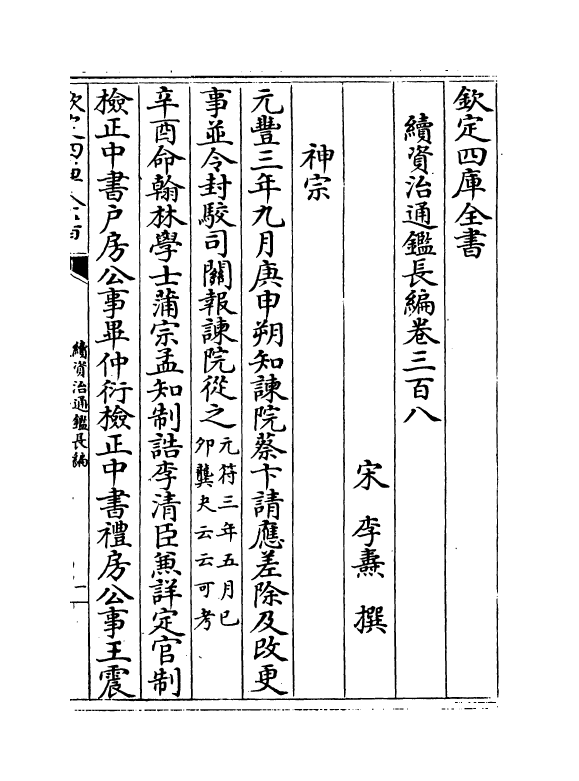 欽定四庫全書
續資治通鑑長編卷三百八
宋 李燾 撰
神宗
元豐三年九月庚申朔知諫院蔡卞請應差除及改更
事並令封駮司關報諫院從之元符三年五月已
卯龔夬云云可考
辛酉命翰林學士蒲宗孟知制誥李清臣兼詳定官制
檢正中書户房公事畢仲衍檢正中書禮房公事王震
續資治通鑑長編